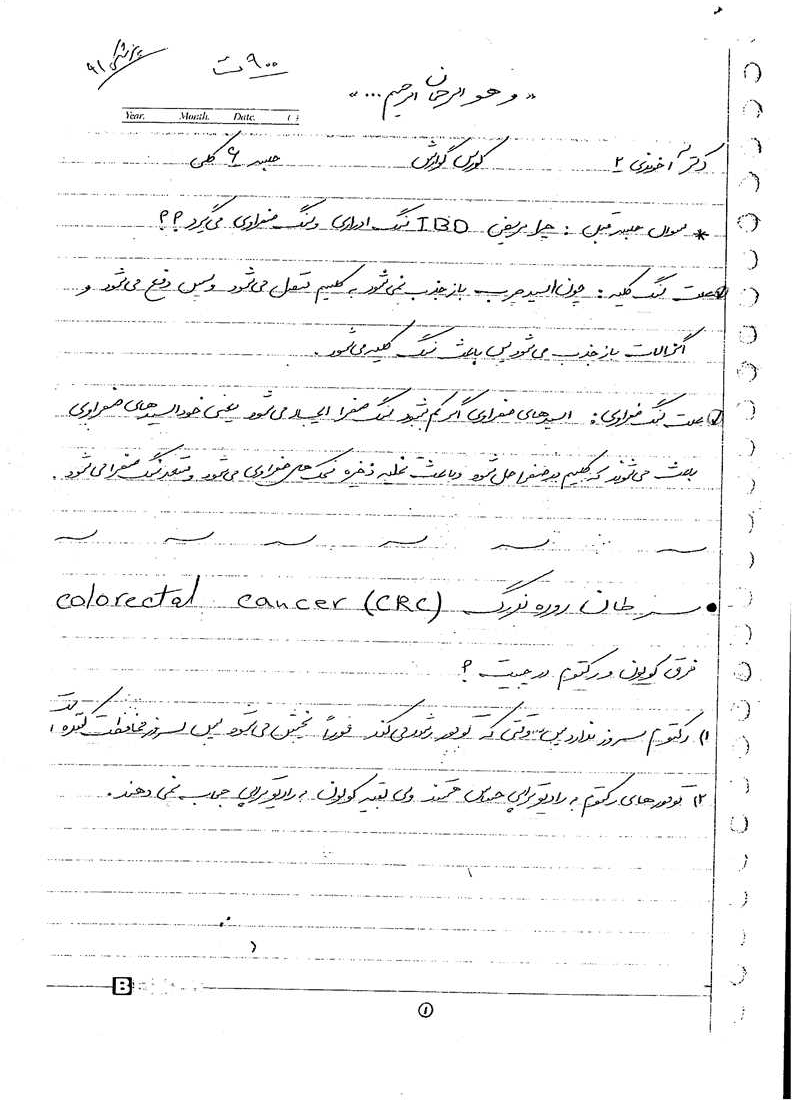 پزشکی ۹۱
۹۰۰ ت
«و هو الرحمان الرحیم ...»
Year. Month. Date. ( )
دکتر آخوندی ۲ کورس گوارش جلسه ۶ کلی
* سوال جلسه قبل : چرا مریض IBD سنگ ادراری و سنگ صفراوی می‌گیرد ؟؟
① علت سنگ کلیه : چون اسید چرب باز جذب نمی‌شود به کلسیم متصل می‌شود و سپس دفع می‌شود و
اگزالات باز جذب می‌شود پس باعث سنگ کلیه می‌شود .
② علت سنگ صفراوی : اسیدهای صفراوی اگر کم شود سنگ صفرا ایجاد می‌شود یعنی خود اسیدهای صفراوی
باعث می‌شوند که کلسیم در صفرا حل شود و باعث تخلیه ذخیره نمک های صفراوی می‌شود و مستعد سنگ صفرا می‌شود .
• سرطان روده بزرگ colorectal cancer (CRC)
فرق کولون و رکتوم در چیست ؟
۱) رکتوم سروز ندارد پس وقتی که تومور رشد می‌کند فوراً پخش می‌شود پس سروز محافظت کننده است
۲) تومورهای رکتوم به رادیوتراپی حساس هستند ولی بقیه کولون به رادیوتراپی جواب نمی دهند .
B
①